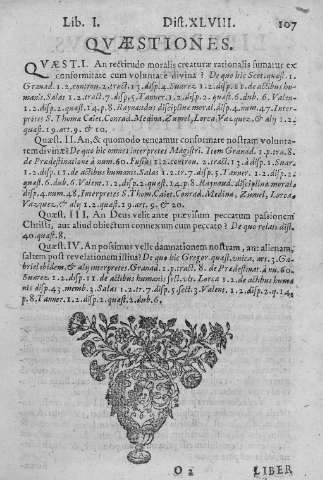 Lib. I. Dist. XLVIII. 107
QVÆSTIONES.
QVÆST. I. An rectitudo moralis creaturæ rationalis sumatur ex
conformitate cum voluntate divina? De quo hic Scot. quæst. 1.
Granad. 1. 2. controu. 2. tract. 13. disp. 4. Suarez 1. 2. disp. 11. de actibus hu-
manis. Salas 1. 2. tract. 7. disp. 5. Tanner. 1. 2. disp. 2. quæst. 6. dub. 6. Valen.
1. 2. disp. 2. quæst. 14. p. 8. Raynaudus disciplinæ moral. disp. 4. num. 47. Inter-
pretes S. Thomæ Caiet. Conrad. Medina, Zumel, Lorca, Vazquez, & alij 1. 2.
quæst. 19. art. 9. & 10.
Quæst. II. An, & quomodo teneamur conformare nostram volunta-
tem divinæ? De quo hic omnes interpretes Magistri. Item Granad. 1. p. tra. 8.
de Prædestinatione à num. 60. Fusius 1. 2. controu. 2. tract. 13. à disp. 1. Suar.
1. 2. disp. 11. de actibus humanis. Salas 1. 2. tr. 7. disp. 5. Tanner. 1. 2. disp. 2.
quæst. 6. dub. 6. Valen. 1. 2. disp. 2. quæst. 14. p. 8. Raynaud. disciplinæ moral.
disp. 4. num. 48. Interpretes S. Thom. Caiet. Conrad. Medina, Zumel, Lorca,
Vazquez, & alij 1. 2. quæst. 19. art. 9. & 10.
Quæst. III. An Deus velit ante prævisum peccatum passionem
Christi, aut aliud obiectum connexum cum peccato? De quo relati dist.
40. quæst. 8.
Quæst. IV. An possimus velle damnationem nostram, aut alienam,
saltem post revelationem illius? De quo hic Gregor. quæst. unica, art. 3. Ga-
briel ibidem, & alij interpretes. Granad. 1. p. tract. 8. de Prædestinat. à nu. 60.
Suarez 1. 2. disp. 11. de actibus humanis sect. vlt. Lorca 1. 2. de actibus huma
nis disp. 43. memb. 3. Salas 1. 2. tr. 7. disp. 5. sect 3. Valent. 1. 2. disp. 2. q. 14.
p 8. Tanner. 1. 2. disp. 2. quæst. 2. dub. 6.
O 2 LIBER